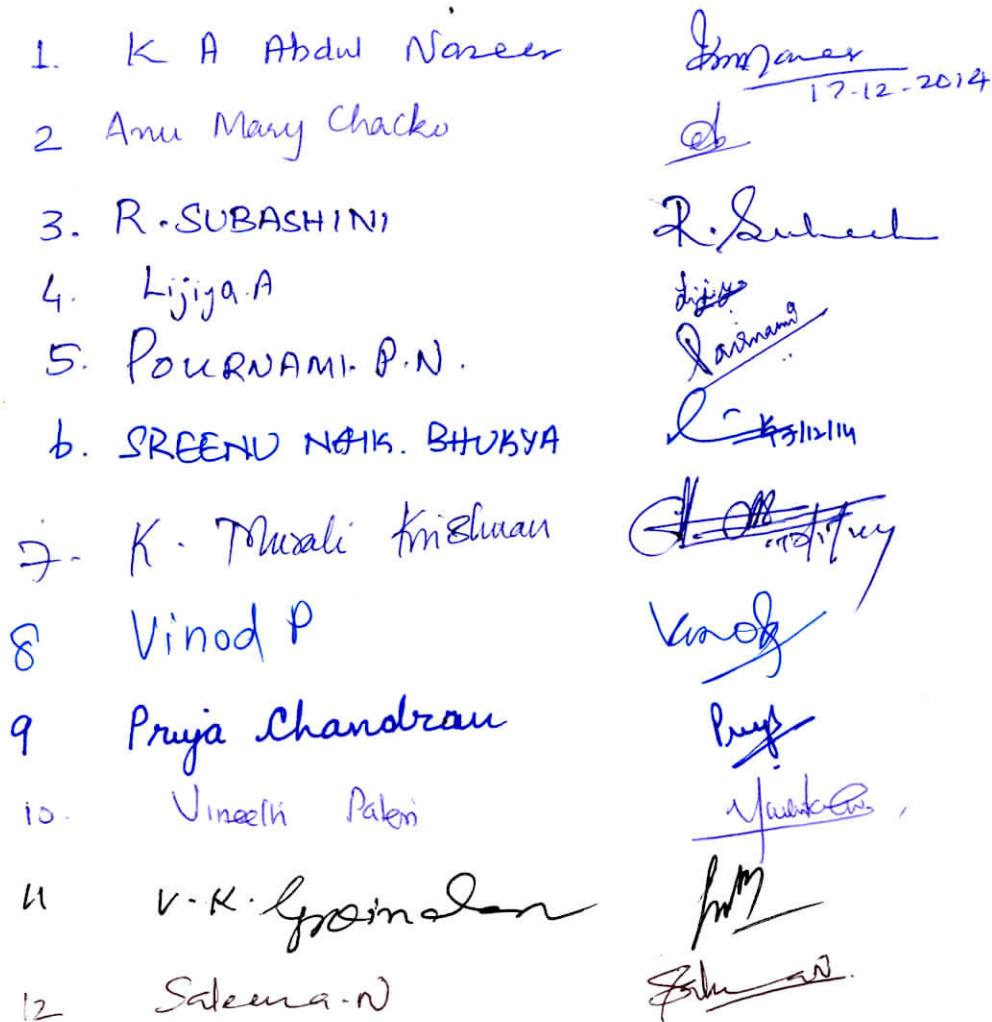 1. K A Abdul Nazeer
17-12-2014
2 Anu Mary Chacko
3. R. SUBASHINI R. Subash
4. Lijiya. A Lijiya
5. POURNAMI. P.N. Pournami
6. SREENU NAIK. BHUKYA 17/12/14
7. K. Murali Krishnan
8 Vinod P Vinod
9 Priya Chandran Priya
10. Vineeth Paleri
11 V. K. Govindan
12 Saleena. N